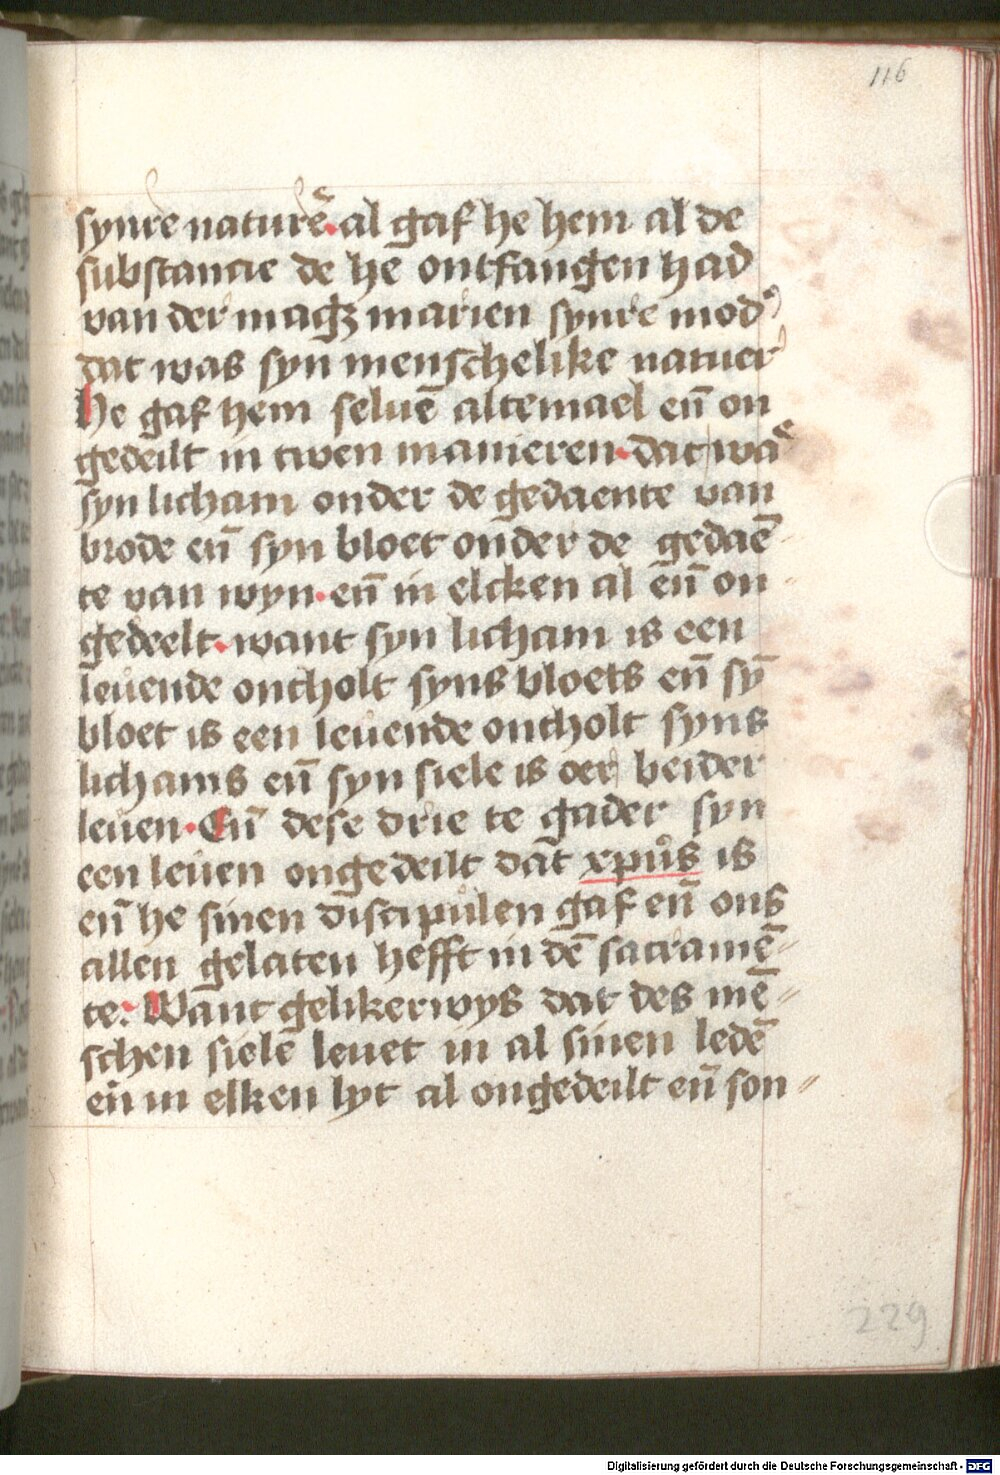 116
synre naturē· al gaf he hem al de
substancie de he ontfangen had
van der magꝫ marien synre mod᾽
dat was syn menschelike natuer
he gaf hem seluē altemael eñ on
gedeilt in twen manieren· dat was
syn licham onder de gedaente van
brode eñ syn bloet onder de gedaē-
te van wyn· eñ in elcken al eñ on-
gedeelt· want syn licham is een
leuende ontholt syns bloets eñ sȳ
bloet is een leuende ontholt syns
lichams eñ syn siele is oer beider
leuen· Eñ dese drie te gader syn
een leuen ongedeilt dat xpūs is
eñ he sinen discipulen gaf eñ ons
allen gelaten hefft in dē sacramē-
te: Want gelikerwys dat des mē-
schen siele leuet in al sinen ledē
eñ in elken lyt al ongedeilt eñ son-
229
Digitalisierung gefördert durch die Deutsche Forschungsgemeinschaft - DFG